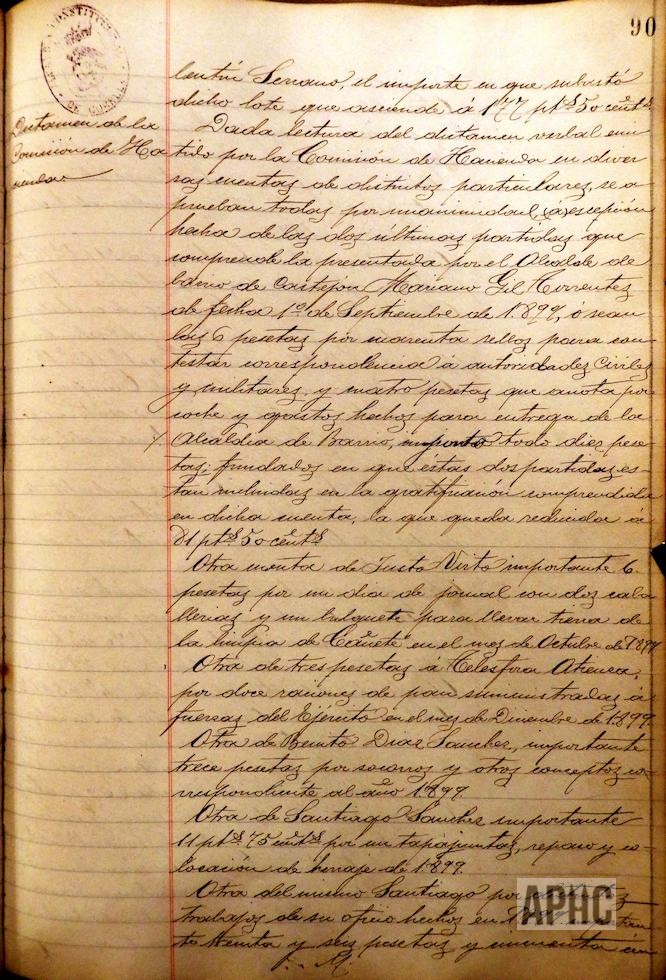 90
Dictamen de la
Comisión de Ha
cienda
lentín Serrano, el importe en que subastó
dicho lote que asciende á 177 pts 50 cénts.
Dada lectura del dictamen verbal emi
tido por la Comisión de Hacienda en diver
sas cuentas de distritos particulares, se a
prueban todas por unanimidad (a) escepción
hecha de las dos últimas partidas que
comprende la presentada por el Alcalde de
barrio de Castejon Mariano Gil Torrentes
de fecha 1º de Septiembre de 1.899, ó sean
las 6 pesetas por cuarenta sellos para con
testar correspondencia á autoridades Civiles
y militares, y cuatro pesetas que anota por
coche y gastos hechos para entrega de la
Alcaldía de Barrio, importa todo diez pese-
tas; fundados en que éstas dos partidas es-
tan incluidas en la gratificación comprendida
en dicha cuenta, la que queda reducida á
81 pts 50 cénts
Otra cuenta de Justo Virto importante 6.
pesetas por un dia de jornal con dos caba
llerias y un bulquete para llevar tierra de
la limpia de Cañete en el mes de Octubre de 1899
Otra de tres pesetas á Telesfora Atienza,
por doce raciones de pan suministradas á
fuerzas del Ejército en el mes de Diciembre de 1.899.
Otra de Benito Diaz Sanchez, importante
trece pesetas por socorros y otros conceptos co-
rrespondiente al año 1.899.
Otra de Santiago Sanchez importante
11 pts 75 cénts por un tapajuntas, repaso y co-
locación de herraje de 1.899.
Otra del mismo Santiago por
trabajos de su oficio hechos en
te treinta y seis pesetas y cincuenta cén
APHC